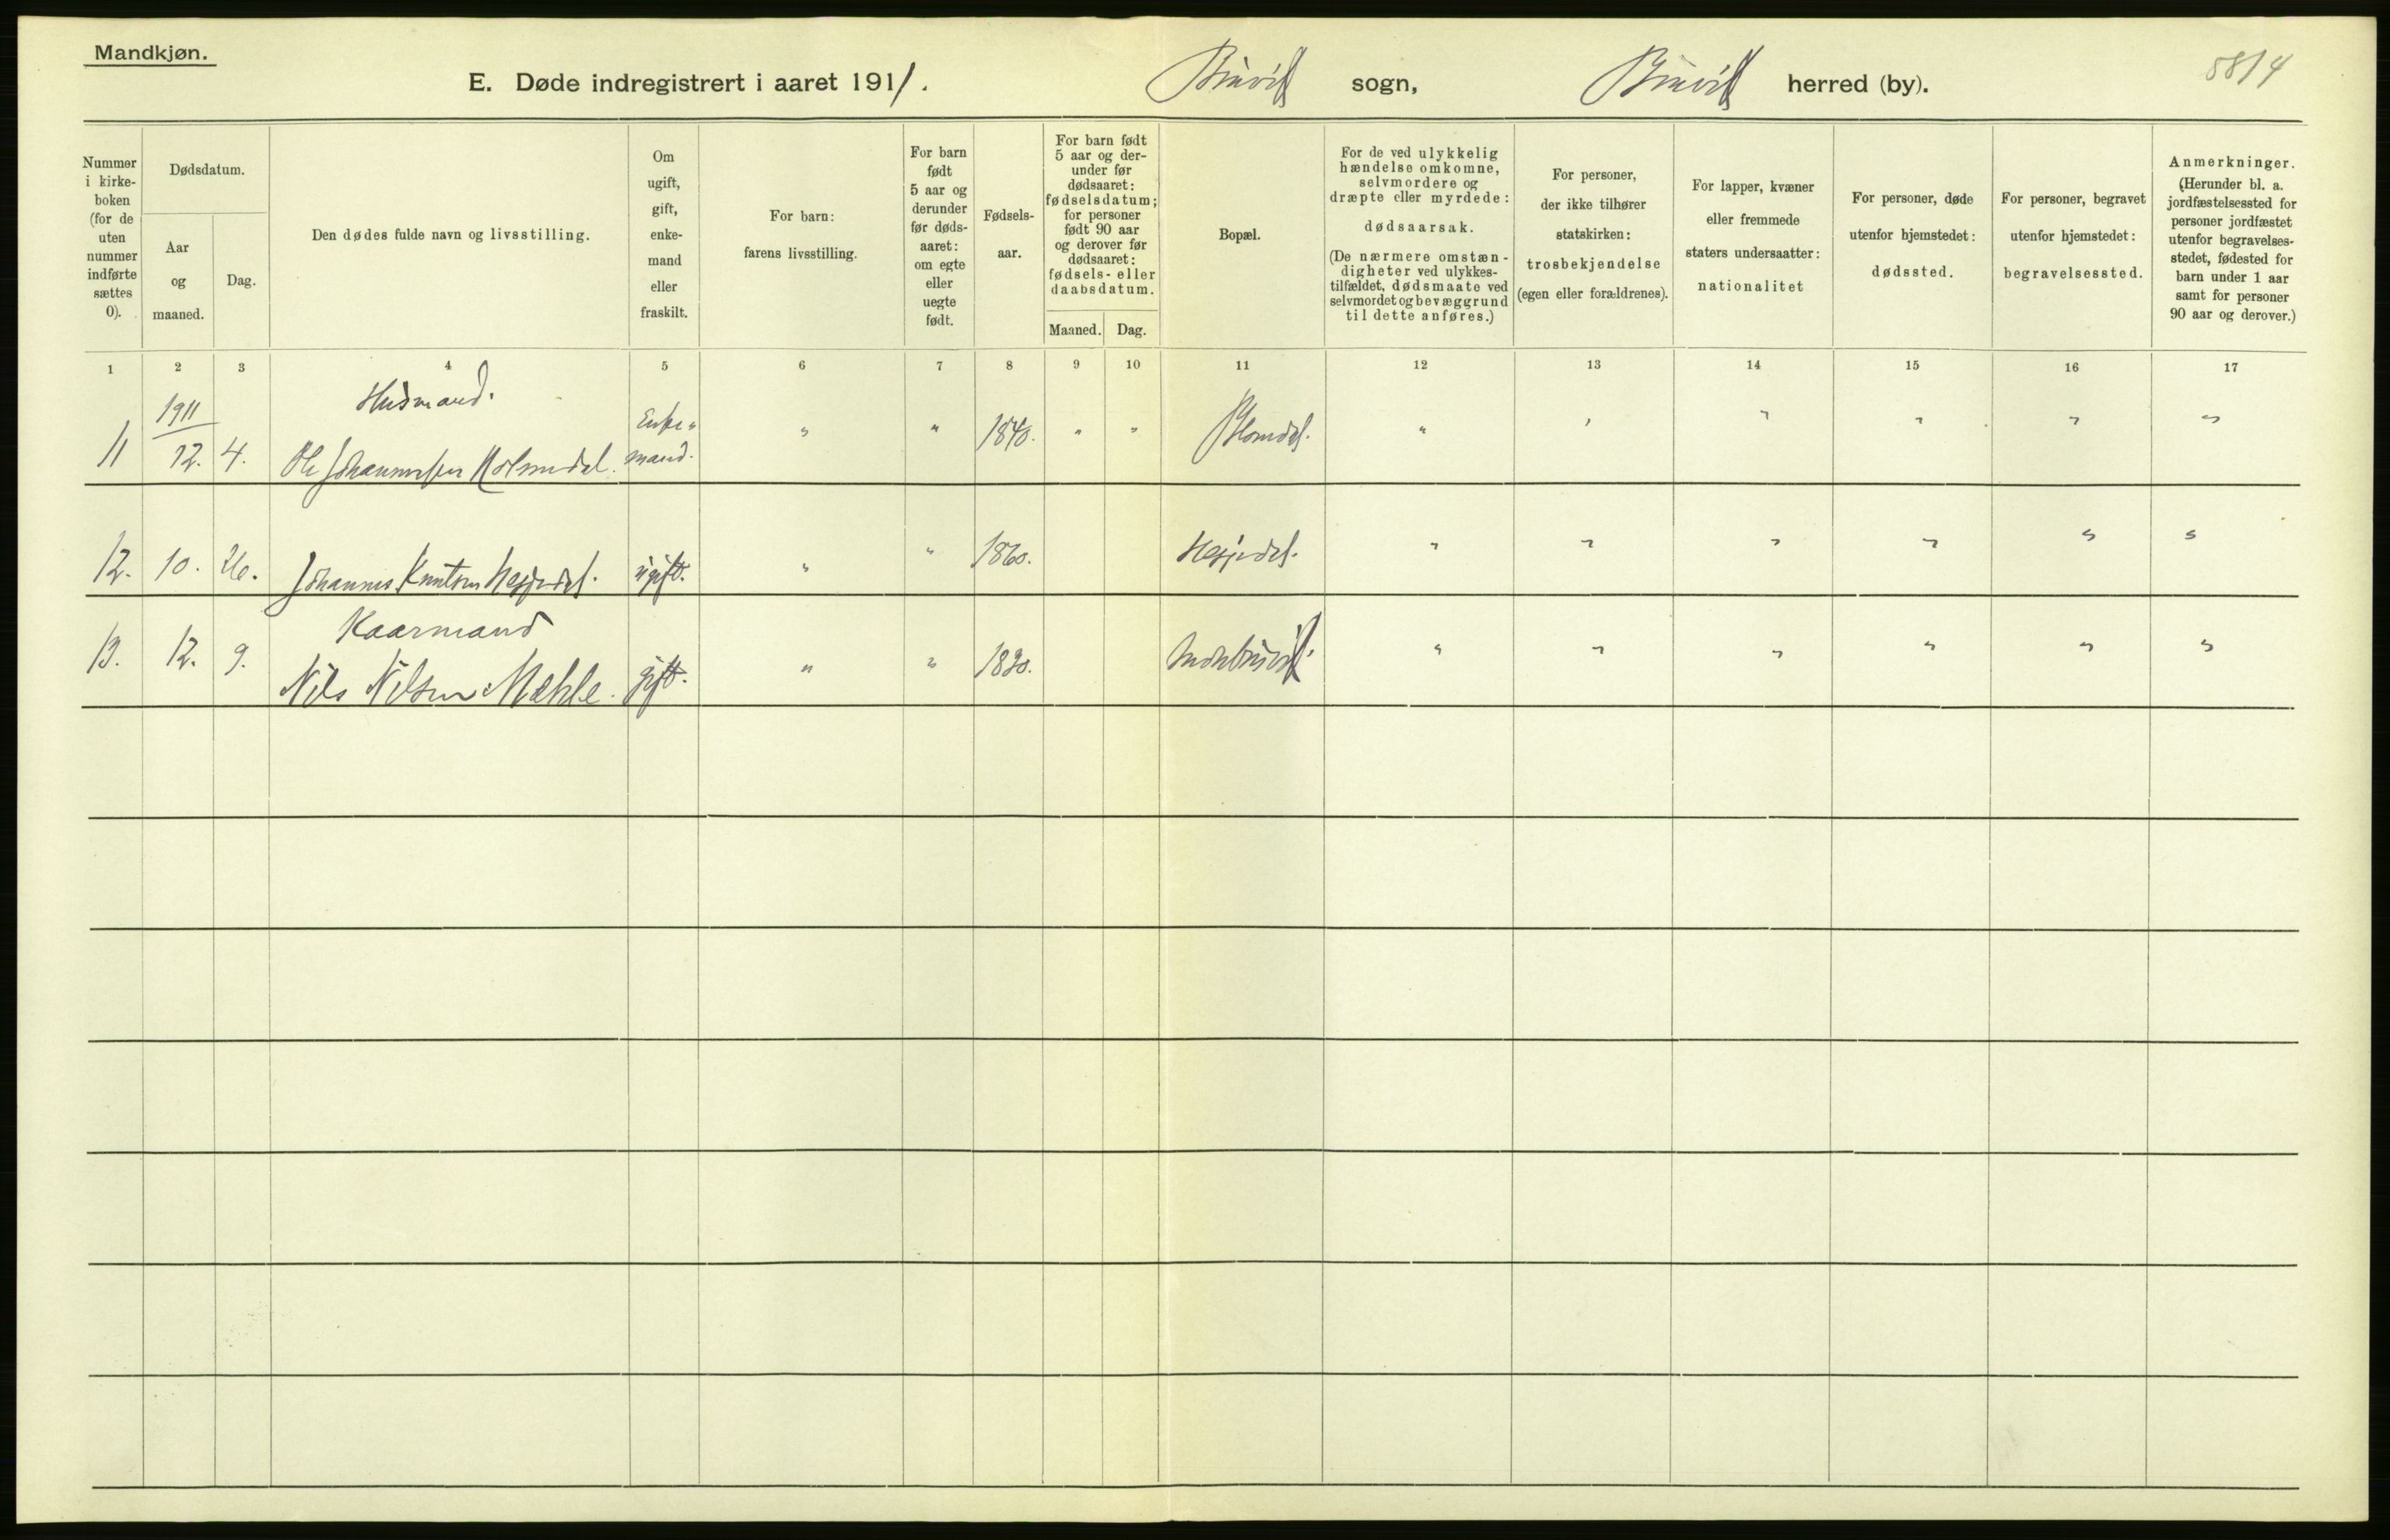 Mandkjøn.
E. Døde indregistrert i aaret 1911. Bruvik sogn, Bruvik herred (by). 5814
Nummer i kirke- boken (for de uten nummer indførte sættes 0).
Dødsdatum.
Aar og maaned.
Dag.
Den dødes fulde navn og livsstilling.
Om ugift, gift, enke- mand eller fraskilt.
For barn: farens livsstilling.
For barn født 5 aar og derunder før døds- aaret: om egte eller uegte født.
Fødsels- aar.
For barn født 5 aar og der- under før dødsaaret: fødselsdatum; for personer født 90 aar og derover før dødsaaret: fødsels- eller daabsdatum.
Maaned. Dag.
Bopæl.
For de ved ulykkelig hændelse omkomne, selvmordere og dræpte eller myrdede: dødsaarsak. (De nærmere omstæn- digheter ved ulykkes- tilfældet, dødsmaate ved selvmordet og bevæggrund til dette anføres.)
For personer, der ikke tilhører statskirken: trosbekjendelse (egen eller forældrenes).
For lapper, kvæner eller fremmede staters undersaatter: nationalitet
For personer, døde utenfor hjemstedet: dødssted.
For personer, begravet utenfor hjemstedet: begravelsessted.
Anmerkninger. (Herunder bl. a. jordfæstelsessted for personer jordfæstet utenfor begravelses- stedet, fødested for barn under 1 aar samt for personer 90 aar og derover.)
1 2 3 4 5 6 7 8 9 10 11 12 13 14 15 16 17
1911 Husmand. Enke-
11 12. 4. Ole Johannessen mand. " " 1840. " " " " " " " "
12. 10. 26. Johannes Knutsen Hesjedal. ugift. " " 1860. Hesjedal. " " " " " "
Kaarmand
13. 12. 9. Nils Nilsen Mæhle. gift. " " 1830. " " " " " "